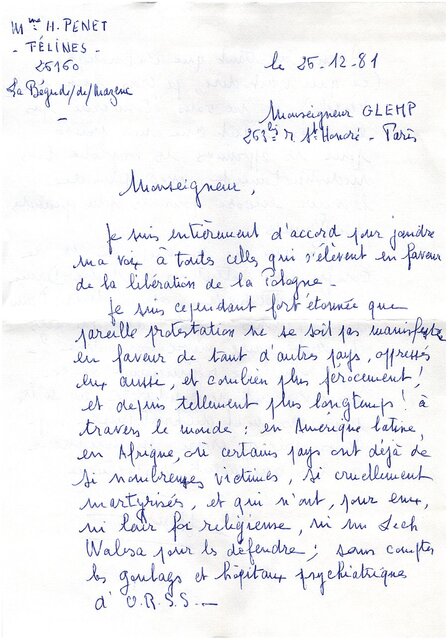 Mme H. PENET
- FÉLINES -
26160
La Bégude/de/Mazenc
le 25-12-81
Monseigneur GLEMP
263bis r St Honoré - Paris
Monseigneur,
Je suis entièrement d'accord pour joindre
ma voix à toutes celles qui s'élèvent en faveur
de la libération de la Pologne -
Je suis cependant fort étonnée que
pareille protestation ne se soit pas manifestée
en faveur de tant d'autres pays, oppressés
eux aussi, et combien plus férocement !
et depuis tellement plus longtemps ! à
travers le monde : en Amérique latine,
en Afrique, où certains pays ont déjà de
si nombreuses victimes, si cruellement
martyrisés, et qui n'ont, pour eux,
ni leur foi religieuse, ni un Lech
Walesa pour les défendre ; sans compter
les goulags et hôpitaux psychiatriques
d'U.R.S.S. -